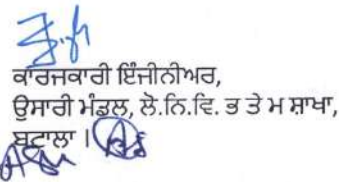 ਕਾਰਜਕਾਰੀ ਇੰਜੀਨੀਅਰ,
ਉਸਾਰੀ ਮੰਡਲ, ਲੋ.ਨਿ.ਵਿ. ਭ ਤੇ ਮ ਸ਼ਾਖਾ,
ਬਟਾਲਾ ।